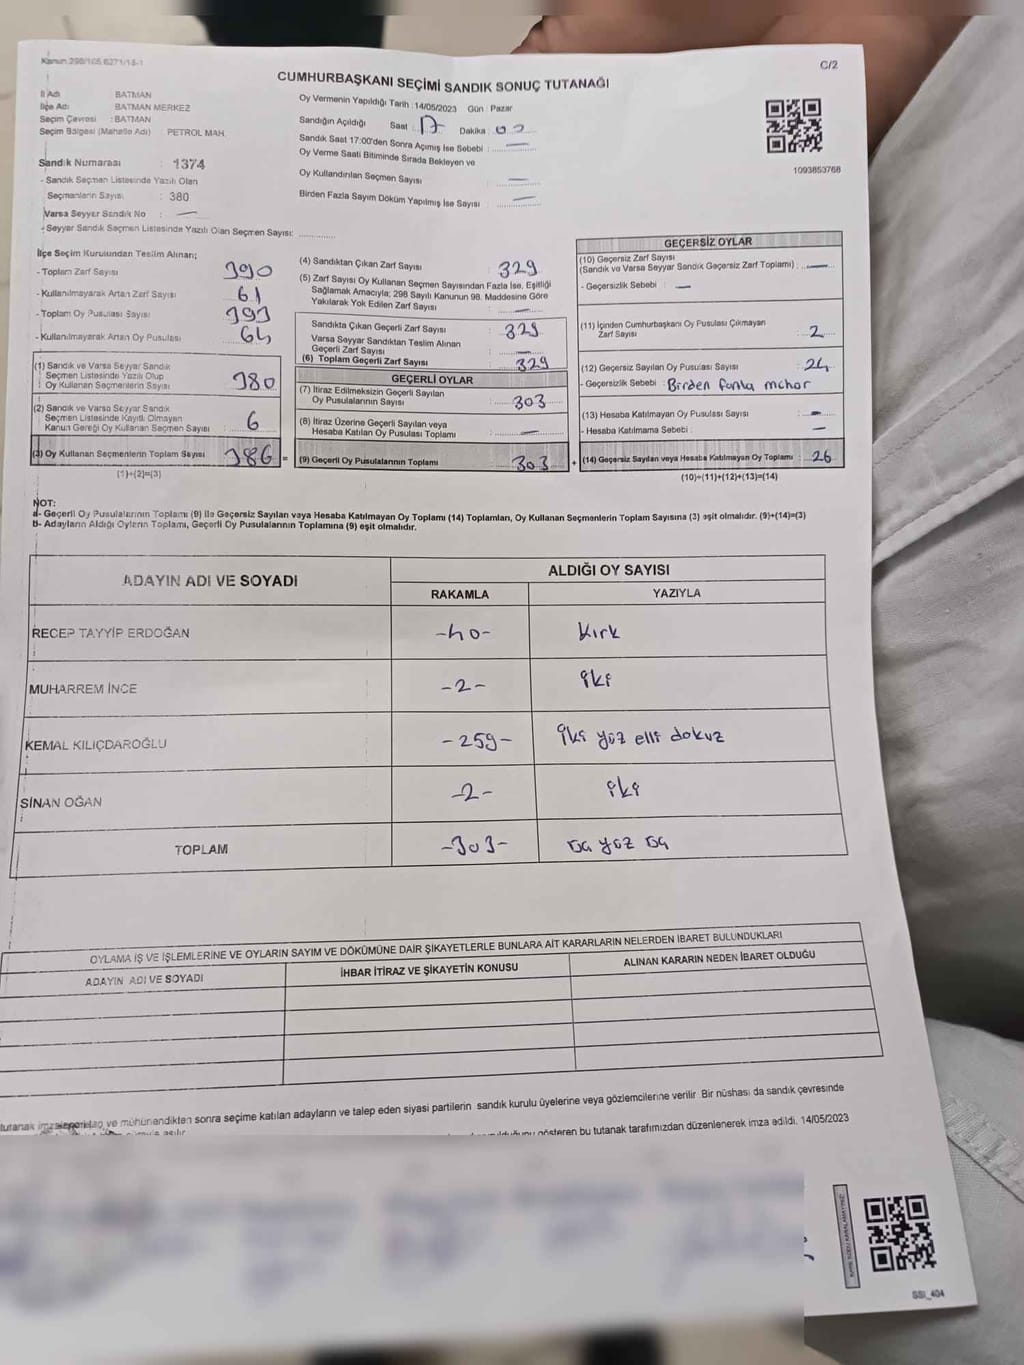 Kanun 298/105 6271/15-1
C/2
CUMHURBAŞKANI SEÇİMİ SANDIK SONUÇ TUTANAĞI
İl Adı BATMAN
İlçe Adı BATMAN MERKEZ
Seçim Çevresi : BATMAN
Seçim Bölgesi (Mahalle Adı) : PETROL MAH.
Sandık Numarası : 1374
- Sandık Seçmen Listesinde Yazılı Olan
Seçmenlerin Sayısı : 380
Varsa Seyyar Sandık No : —
- Seyyar Sandık Seçmen Listesinde Yazılı Olan Seçmen Sayısı: ............
Oy Vermenin Yapıldığı Tarih : 14/05/2023 Gün : Pazar
Sandığın Açıldığı Saat : 17 Dakika :
Sandık Saat 17:00'den Sonra Açımış İse Sebebi : —
Oy Verme Saati Bitiminde Sırada Bekleyen ve
Oy Kullandırılan Seçmen Sayısı : —
Birden Fazla Sayım Döküm Yapılmış İse Sayısı : —
1093853768
İlçe Seçim Kurulundan Teslim Alınan;
- Toplam Zarf Sayısı : 390
- Kullanılmayarak Artan Zarf Sayısı : 61
- Toplam Oy Pusulası Sayısı : 393
- Kullanılmayarak Artan Oy Pusulası : 64
(1) Sandık ve Varsa Seyyar Sandık
Seçmen Listesinde Yazılı Olup
Oy Kullanan Seçmenlerin Sayısı : 380
(2) Sandık ve Varsa Seyyar Sandık
Seçmen Listesinde Kayıtlı Olmayan
Kanun Gereği Oy Kullanan Seçmen Sayısı : 6
(3) Oy Kullanan Seçmenlerin Toplam Sayısı : 386 =
(1)+(2)=(3)
(4) Sandıktan Çıkan Zarf Sayısı : 329
(5) Zarf Sayısı Oy Kullanan Seçmen Sayısından Fazla İse, Eşitliği
Sağlamak Amacıyla; 298 Sayılı Kanunun 98. Maddesine Göre
Yakılarak Yok Edilen Zarf Sayısı : —
Sandıkta Çıkan Geçerli Zarf Sayısı : 329
Varsa Seyyar Sandıktan Teslim Alınan
Geçerli Zarf Sayısı : —
(6) Toplam Geçerli Zarf Sayısı : 329
GEÇERLİ OYLAR
(7) İtiraz Edilmeksizin Geçerli Sayılan
Oy Pusulalarının Sayısı : 303
(8) İtiraz Üzerine Geçerli Sayılan veya
Hesaba Katılan Oy Pusulası Toplamı : —
(9) Geçerli Oy Pusulalarının Toplamı : 303 +
GEÇERSİZ OYLAR
(10) Geçersiz Zarf Sayısı
(Sandık ve Varsa Seyyar Sandık Geçersiz Zarf Toplamı) : —
- Geçersizlik Sebebi : —
(11) İçinden Cumhurbaşkanı Oy Pusulası Çıkmayan
Zarf Sayısı : 2
(12) Geçersiz Sayılan Oy Pusulası Sayısı : 24
- Geçersizlik Sebebi : Birden fazla mühür
(13) Hesaba Katılmayan Oy Pusulası Sayısı : —
- Hesaba Katılmama Sebebi : —
(14) Geçersiz Sayılan veya Hesaba Katılmayan Oy Toplamı : 26
(10)+(11)+(12)+(13)=(14)
NOT:
a- Geçerli Oy Pusulalarının Toplamı (9) ile Geçersiz Sayılan veya Hesaba Katılmayan Oy Toplamı (14) Toplamları, Oy Kullanan Seçmenlerin Toplam Sayısına (3) eşit olmalıdır. (9)+(14)=(3)
b- Adayların Aldığı Oyların Toplamı, Geçerli Oy Pusulalarının Toplamına (9) eşit olmalıdır.
ADAYIN ADI VE SOYADI ALDIĞI OY SAYISI
RAKAMLA YAZIYLA
RECEP TAYYİP ERDOĞAN -40- kırk
MUHARREM İNCE -2- iki
KEMAL KILIÇDAROĞLU -259- iki yüz elli dokuz
SİNAN OĞAN -2- iki
TOPLAM -303- üç yüz üç
OYLAMA İŞ VE İŞLEMLERİNE VE OYLARIN SAYIM VE DÖKÜMÜNE DAİR ŞİKAYETLERLE BUNLARA AİT KARARLARIN NELERDEN İBARET BULUNDUKLARI
ADAYIN ADI VE SOYADI İHBAR İTİRAZ VE ŞİKAYETİN KONUSU ALINAN KARARIN NEDEN İBARET OLDUĞU
tutanak ve mühürlendikten sonra seçime katılan adayların ve talep eden siyasi partilerin sandık kurulu üyelerine veya gözlemcilerine verilir. Bir nüshası da sandık çevresinde
gösteren bu tutanak tarafımızdan düzenlenerek imza edildi. 14/05/2023
SSI_404